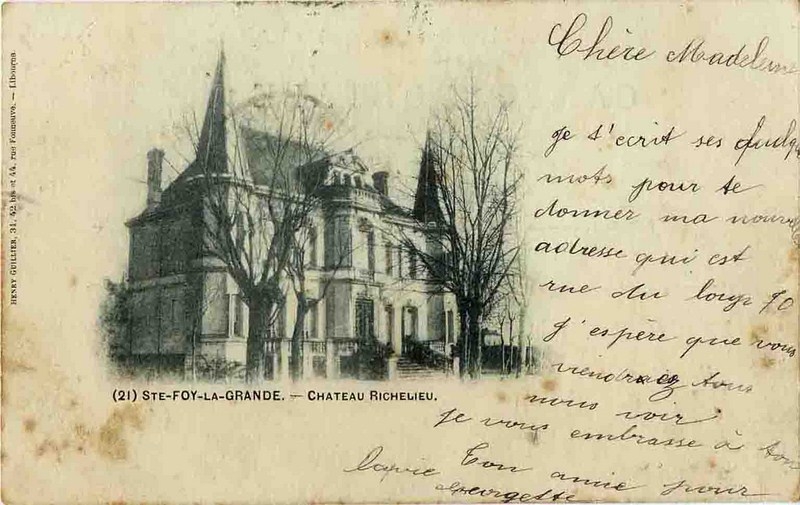 HENRY GUILLIER, 31, 42 bis et 44, rue Fonneuve. — Libourne
Chère Madeleine
je t'écrit ses quelq
mots pour te
donner ma nouvelle
adresse qui est
rue du loup 70
J'espère que vous
viendraez tous
nous voir
je vous embrasse à tous
Ton amie pour
lavie
Georgette
(21) STE-FOY-LA-GRANDE. — CHATEAU RICHELIEU.